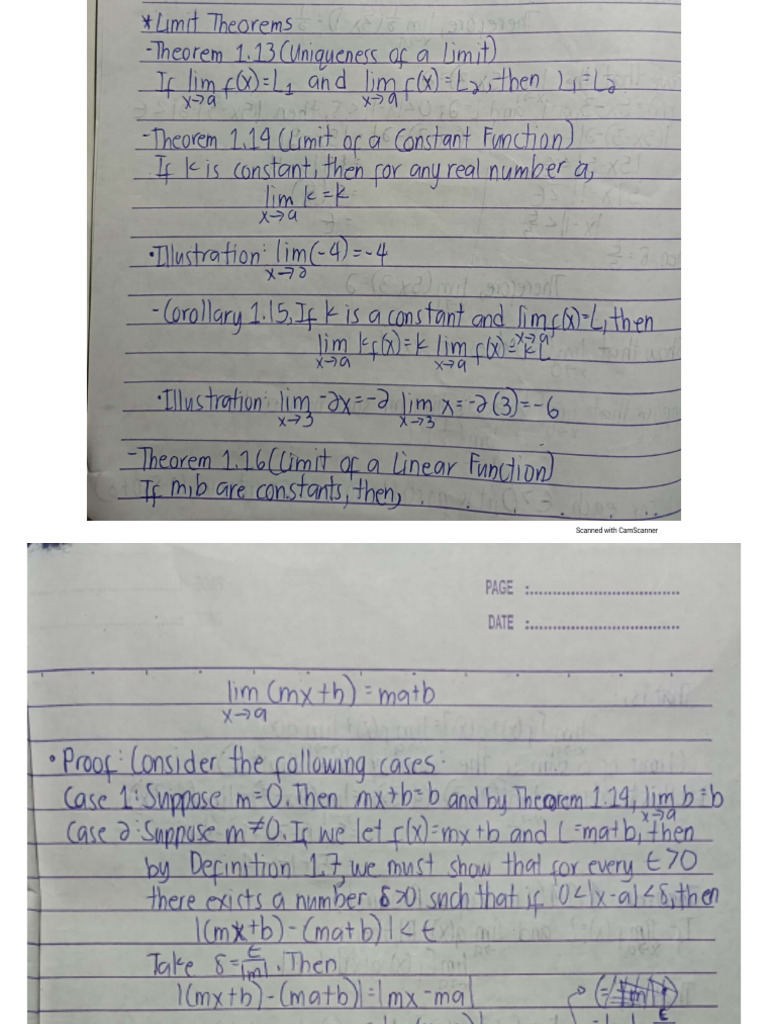 *Limit Theorems
-Theorem 1.13 (Uniqueness of a Limit)
If lim x→a f(x)=L₁ and lim x→a f(x)=L₂, then L₁=L₂
-Theorem 1.14 (Limit of a Constant Function)
If k is constant, then for any real number a,
lim x→a k=k
•Illustration: lim x→2 (-4)=-4
-Corollary 1.15, If k is a constant and lim x→a f(x)=L, then
lim x→a kf(x)=k lim x→a f(x)=kL
•Illustration: lim x→3 -2x=-2 lim x→3 x=-2(3)=-6
-Theorem 1.16 (Limit of a Linear Function)
If m,b are constants, then,
Scanned with CamScanner
PAGE :
DATE :
lim x→a (mx+b)=ma+b
•Proof: Consider the following cases:
Case 1: Suppose m=0. Then mx+b=b and by Theorem 1.14, lim x→a b=b
Case 2: Suppose m≠0. If we let f(x)=mx+b and L=ma+b, then
by Definition 1.7, we must show that for every ε>0
there exists a number δ>0 such that if 0<|x-a|<δ, then
|(mx+b)-(ma+b)|<ε
Take δ=ε/|m|. Then
|(mx+b)-(ma+b)|=|mx-ma|